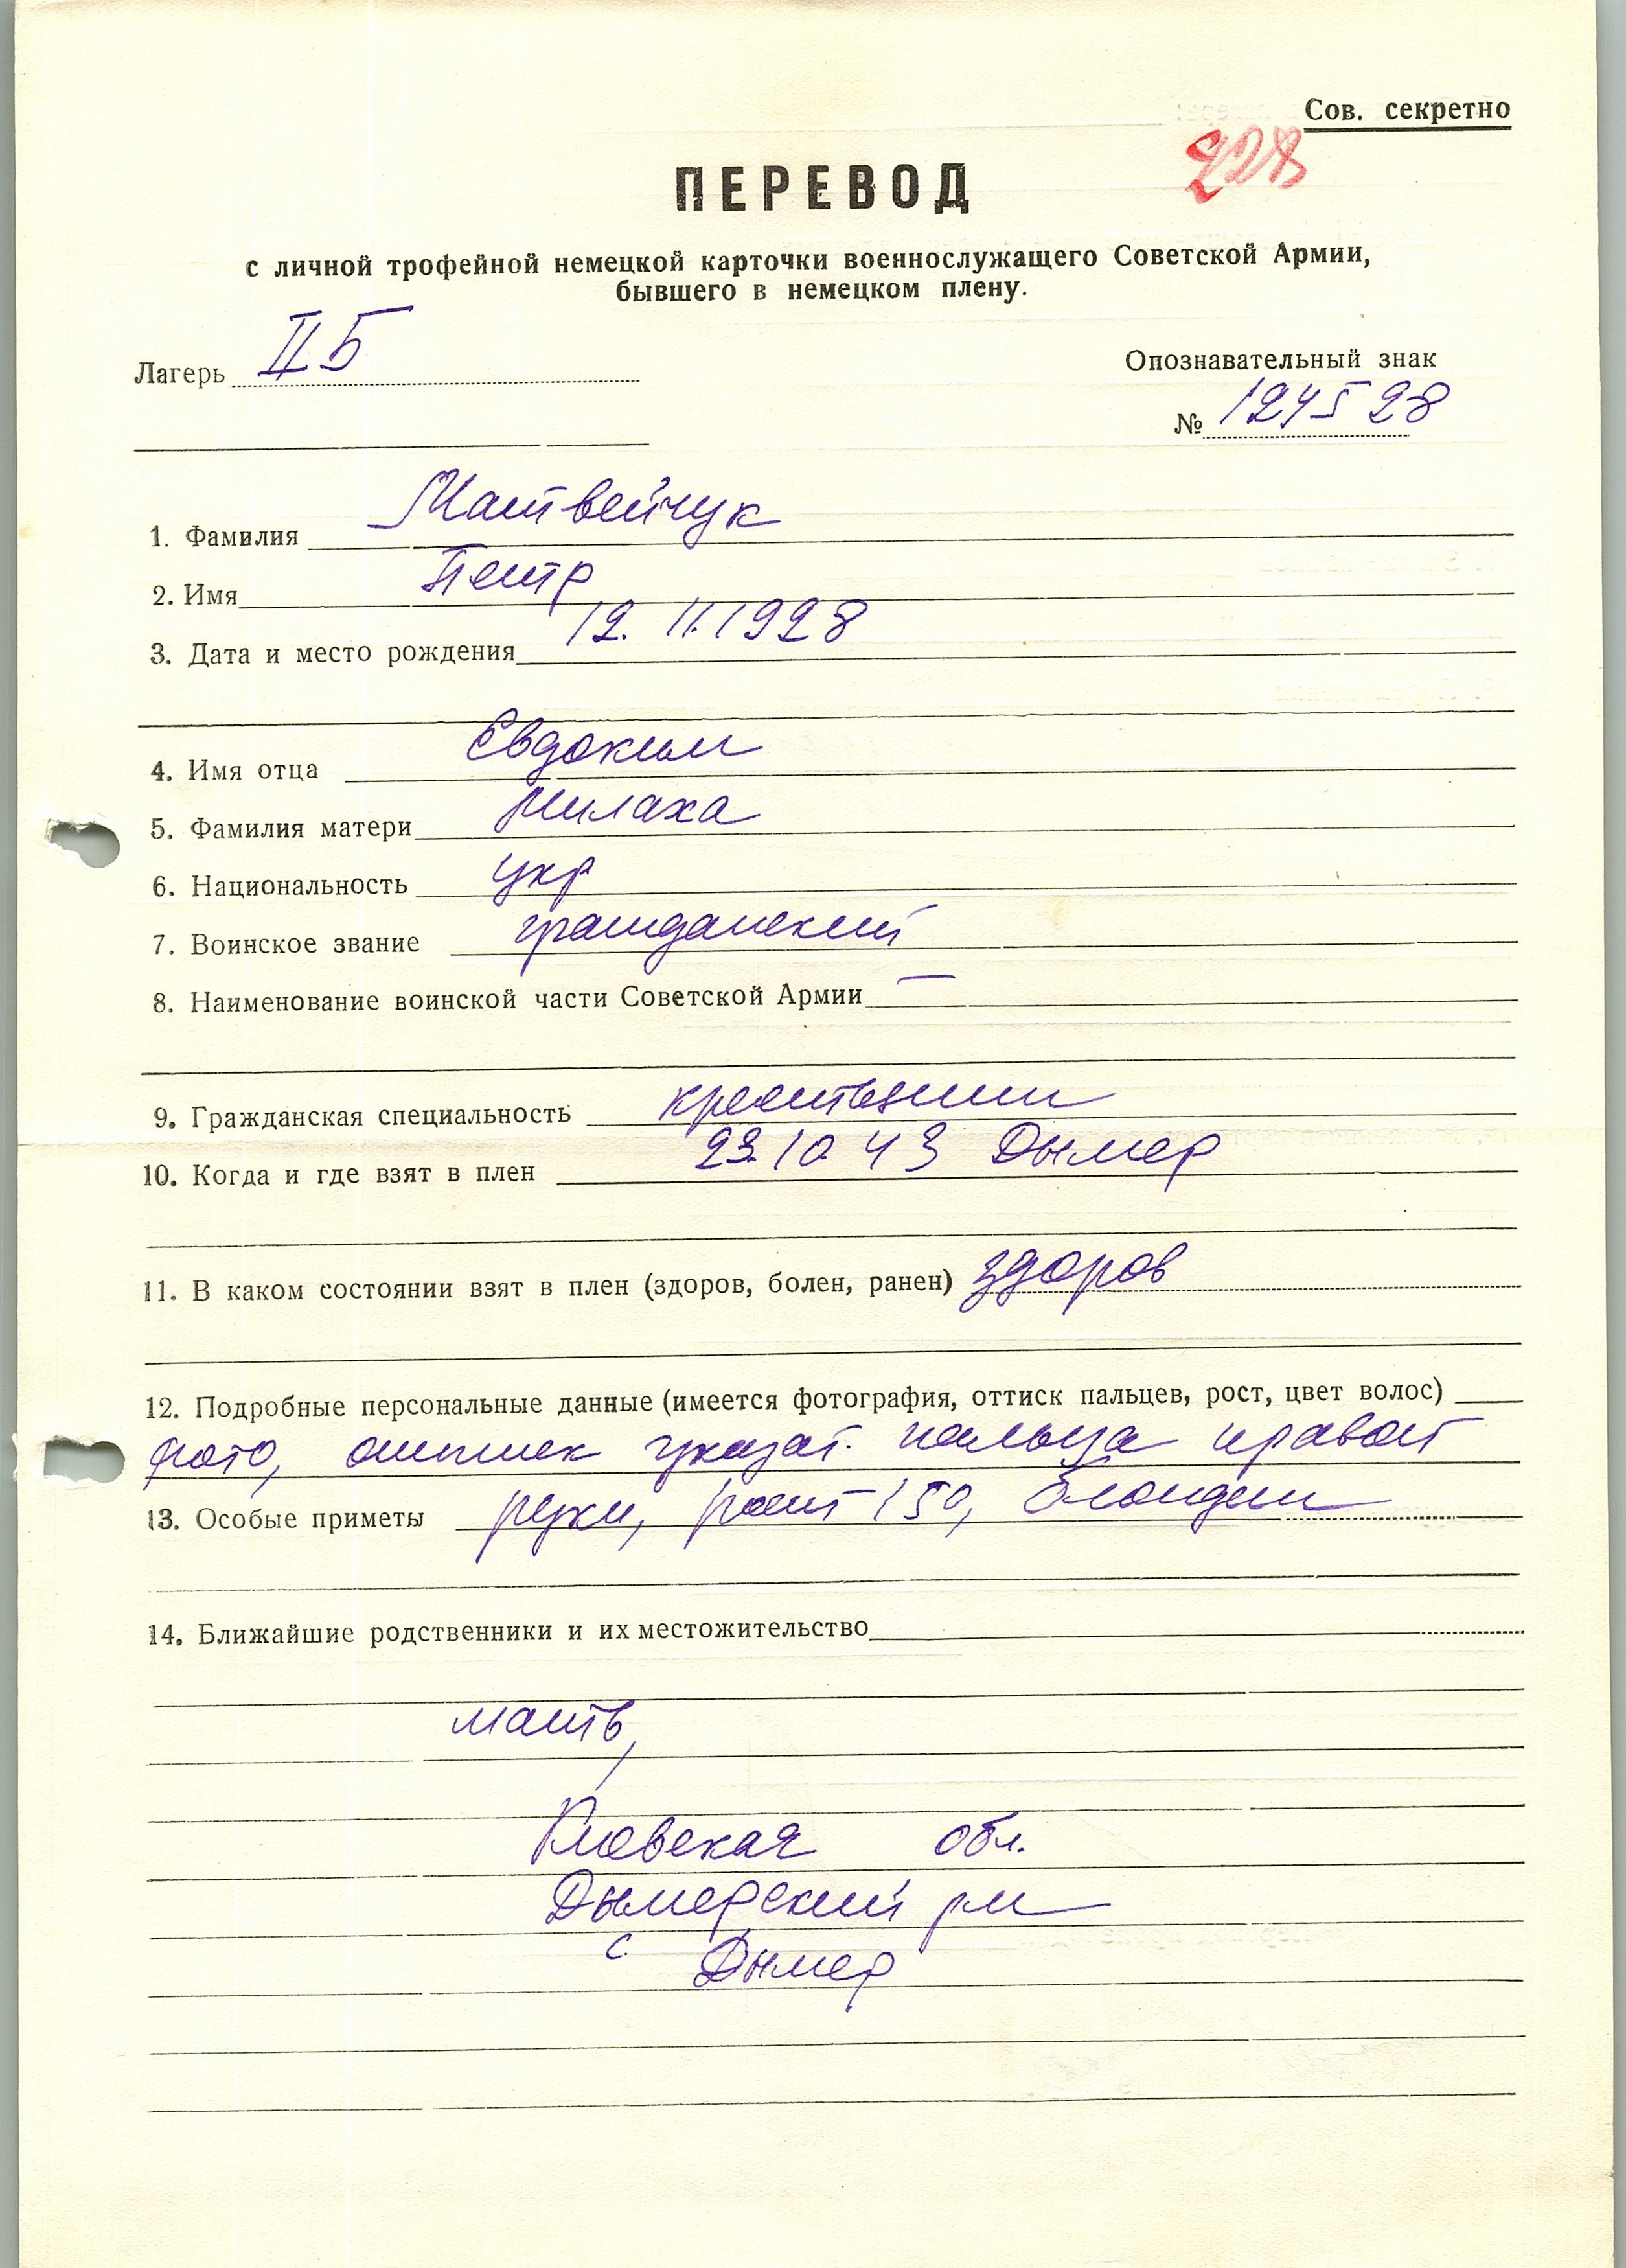 Сов. секретно
228
ПЕРЕВОД
с личной трофейной немецкой карточки военнослужащего Советской Армии,
бывшего в немецком плену.
Лагерь II Б
Опознавательный знак
№ 124528
1. Фамилия Матвейчук
2. Имя Петр
3. Дата и место рождения 12.11.1928
4. Имя отца Евдоким
5. Фамилия матери Милаха
6. Национальность укр
7. Воинское звание гражданский
8. Наименование воинской части Советской Армии —
9. Гражданская специальность крестьянин
10. Когда и где взят в плен 23.10.43 Дымер
11. В каком состоянии взят в плен (здоров, болен, ранен) здоров
12. Подробные персональные данные (имеется фотография, оттиск пальцев, рост, цвет волос)
фото, оттиск указат. пальца правой
13. Особые приметы руки, рост 150, блондин
14. Ближайшие родственники и их местожительство
мать,
Киевская обл.
Дымерский р-н
с. Дымер